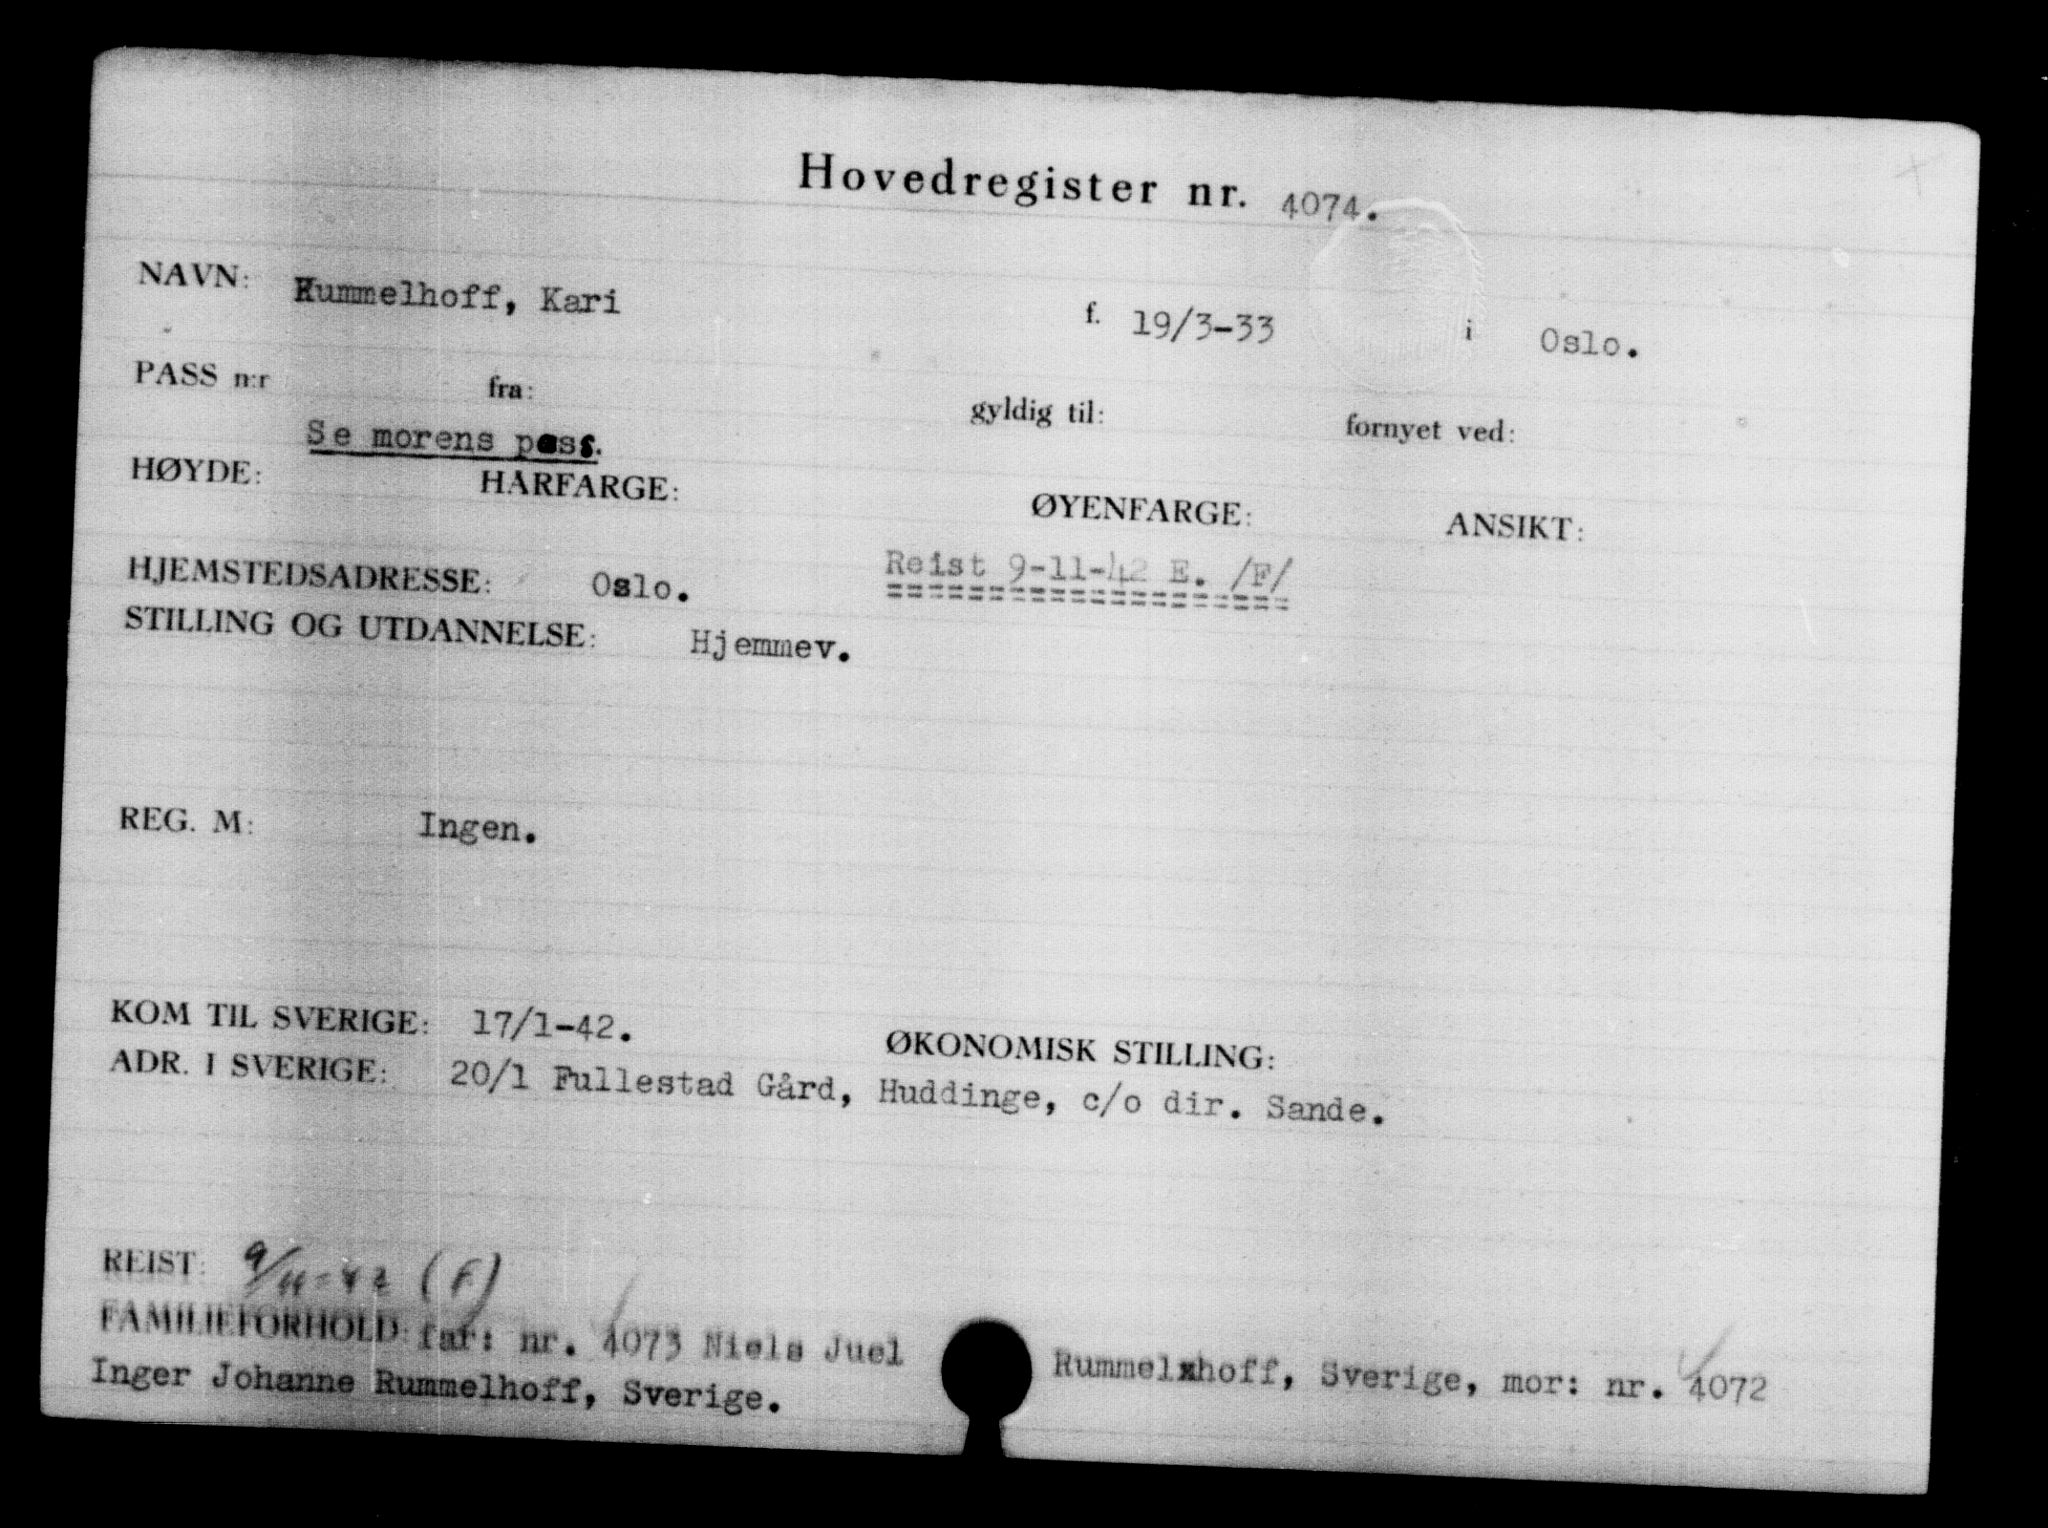 Hovedregister nr. 4074.
NAVN: Rummelhoff, Kari f. 19/3-33 i Oslo.
PASS n:r fra: gyldig til: fornyet ved:
Se morens pass.
HØYDE: HÅRFARGE: ØYENFARGE: ANSIKT:
HJEMSTEDSADRESSE: Oslo. Reist 9-11-42 E. /F/
STILLING OG UTDANNELSE: Hjemmev.
REG. M: Ingen.
KOM TIL SVERIGE: 17/1-42. ØKONOMISK STILLING:
ADR. I SVERIGE: 20/1 Fullestad Gård, Huddinge, c/o dir. Sande.
REIST: 9/11-42 (F)
FAMILIEFORHOLD: far: nr. 4073 Niels Juel Rummelxhoff, Sverige, mor: nr. 4072
Inger Johanne Rummelhoff, Sverige.